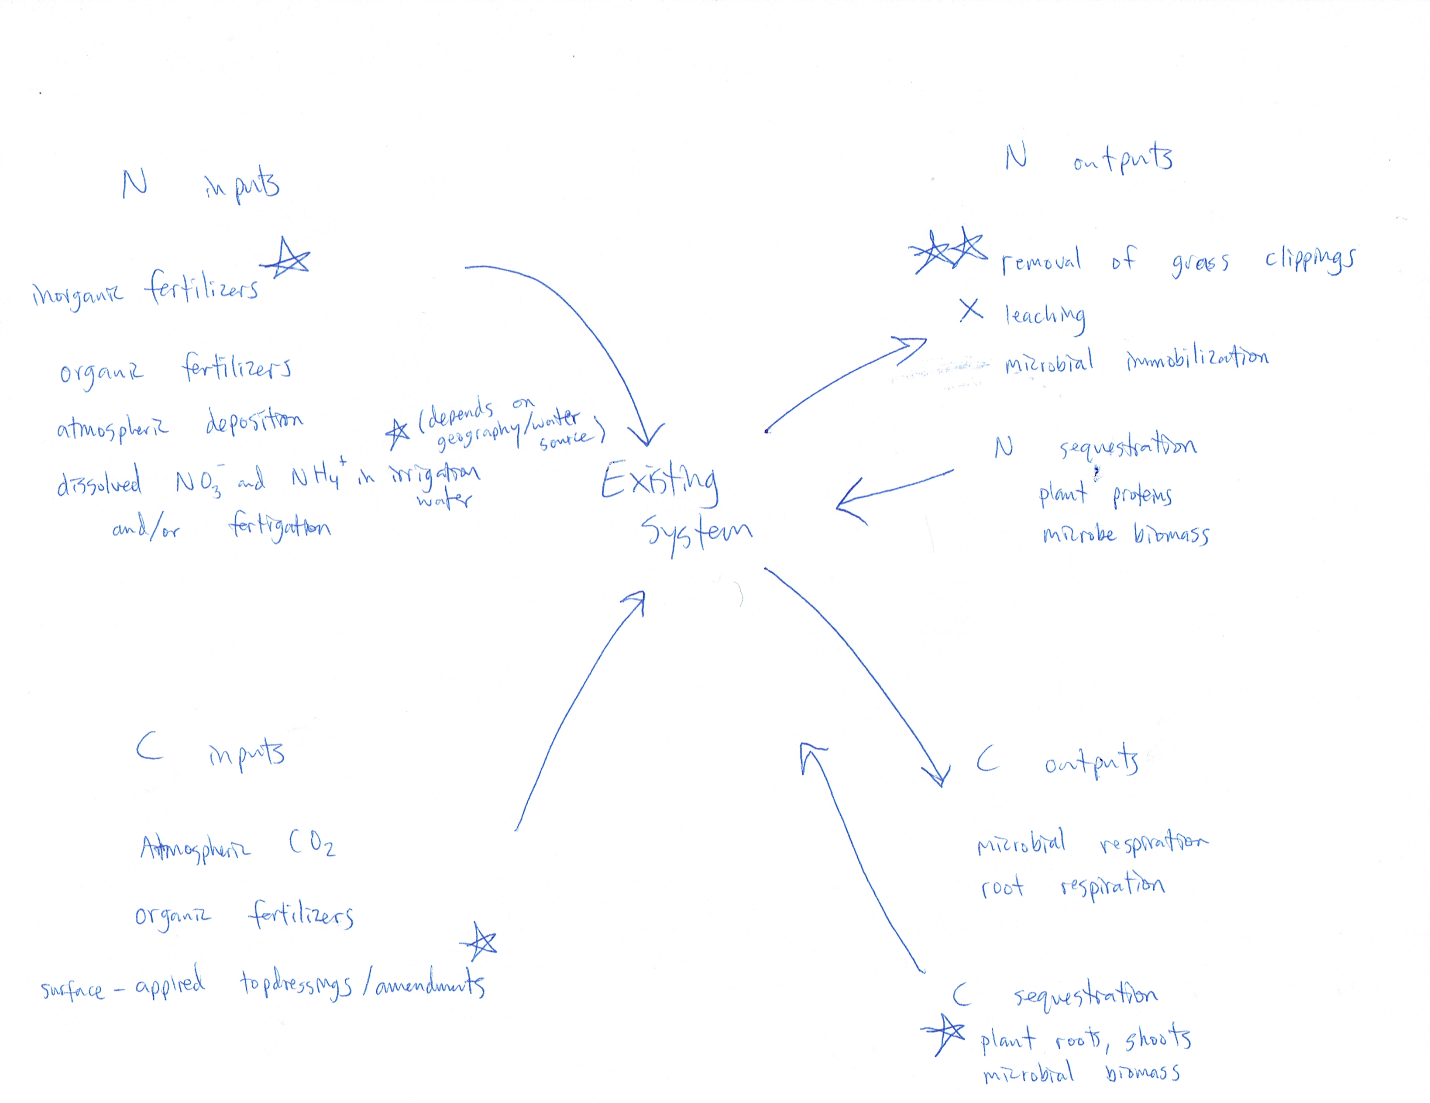 N inputs
inorganic fertilizers
organic fertilizers
atmospheric deposition
(depends on
geography/water
source)
dissolved NO3- and NH4+ in irrigation
water
and/or fertigation
Existing
System
N outputs
removal of grass clippings
X leaching
microbial immobilization
N sequestration
plant proteins
microbe biomass
C inputs
Atmospheric CO2
organic fertilizers
surface-applied topdressings/amendments
C outputs
microbial respiration
root respiration
C sequestration
plant roots, shoots
microbial biomass